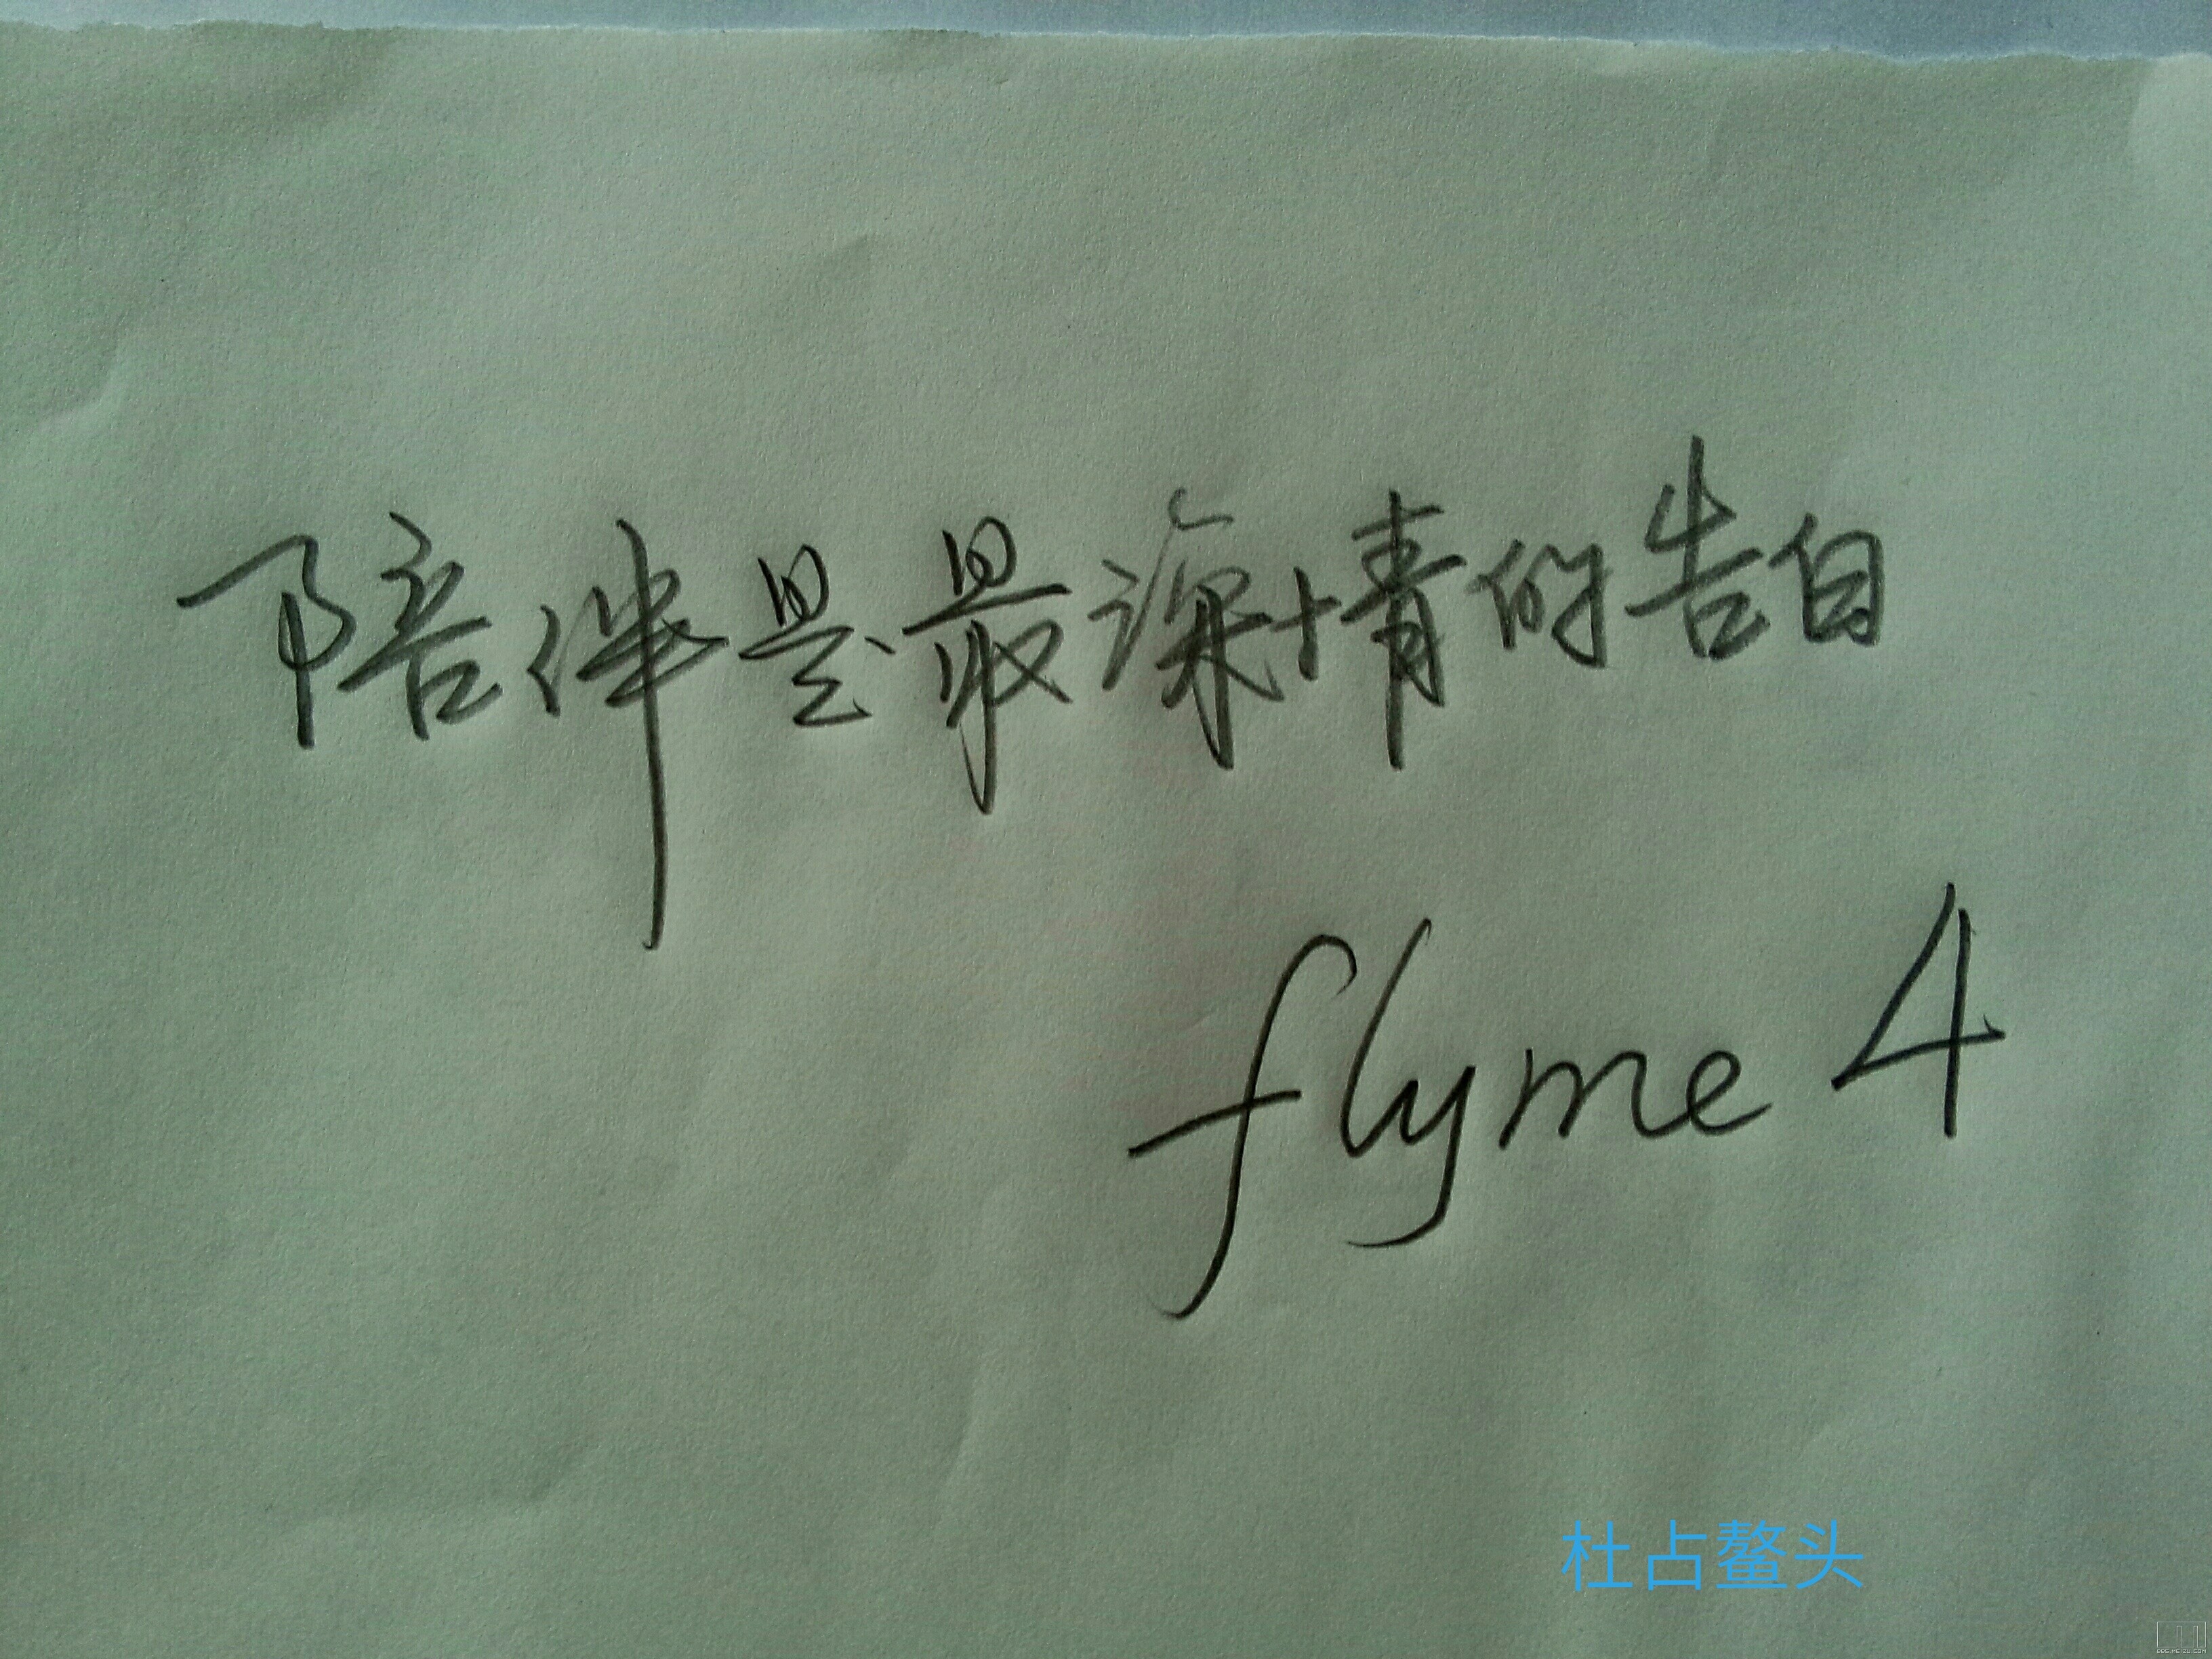 陪伴是最深情的告白
flyme 4
杜占鳌头
BBS.MEIZU.COM